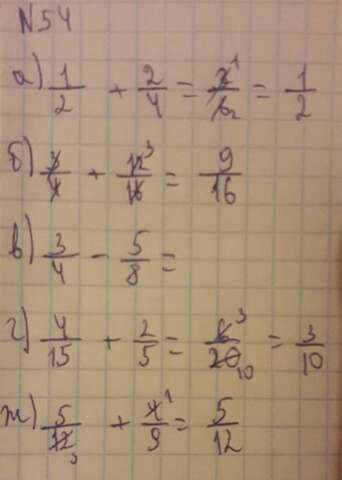 №54
а) 1/2 + 2/4 = 2̶ ¹/6̶ ₂ = 1/2
б) 3̶/4̶ + 12̶ ³/16̶ = 9/16
в) 3/4 - 5/8 =
г) 4/15 + 2/5 = 6̶ ³/20̶ ₁₀ = 3/10
ж) 5/12̶ ₃ + 4̶ ¹/9 = 5/12